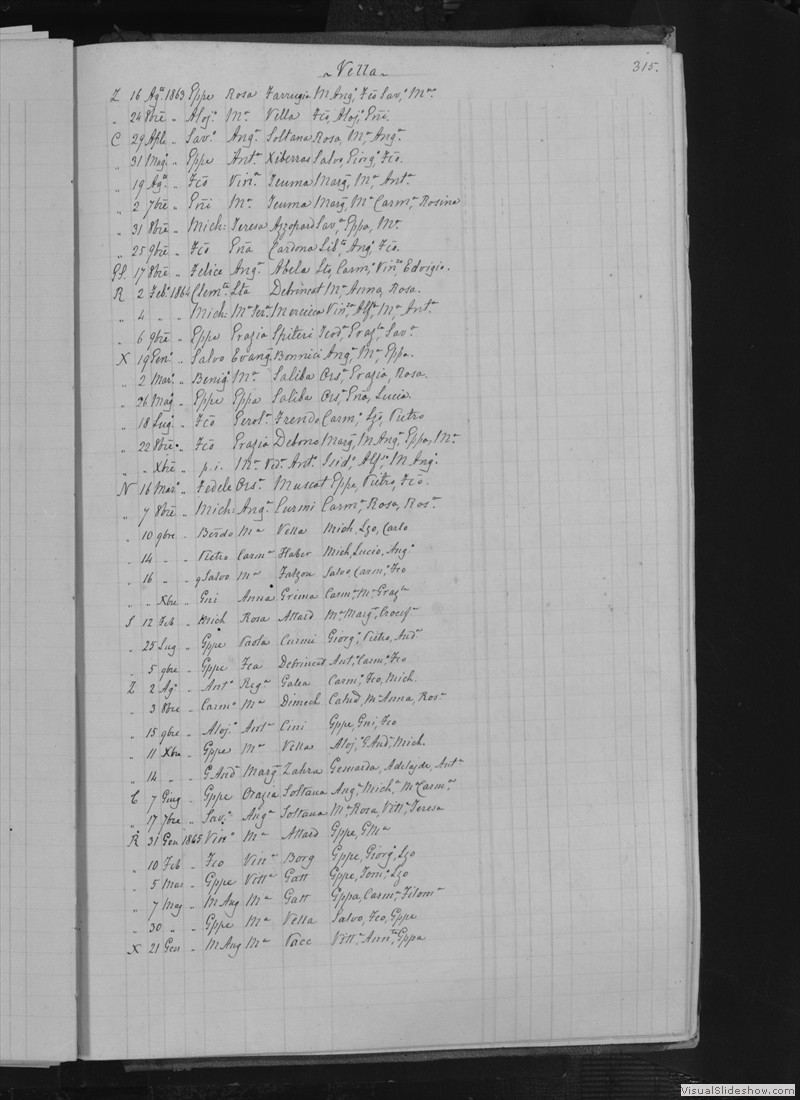 ~ Vella ~ 315.
Z 16 Agº 1863 Gppe Rosa Farrugia M Angª Fcõ Savª Mª
„ 24 8bre „ Alojº Mª Vella Fcõ, Alojº Gñi.
C 29 Aple „ Savº Angª Soltana Rosa, Mª Angª
„ 31 Magº „ Gppe Antª Xiberras Salvo, Giorgº Fcõ.
„ 19 Agº „ Fcõ Vinª Teuma Margª Mª Antª
„ 2 7bre „ Gñi Mª Teuma Margª Mª Carmª Rosina
„ 31 8bre „ Mich: Teresa Azzopard Savª Gppa, Mª
„ 25 9bre „ Fcõ Gña Cardona Libª Angº Fcõ.
17 8bre „ Felice Angª Abela Carmª Edvigia.
R 2 Febº 1864 Clemte Lta Debrincat Mª Anna, Rosa.
„ 4 „ „ Mich: Mª Terª Mercieca Vinª Alfº Mª Antª
„ 6 9bre „ Gppe Grazia Spiteri Teodª Grazª Savª
X 19 Genº „ Salvo Evangª Bonnici Angª Mª Gppa.
„ 2 Marº „ Benigº Mª Saliba Orsª Grazia, Rosa.
„ 26 Magº „ Gppe Gppa Saliba Orsª Gña, Lucia.
„ 18 Lugº „ Fcõ Gerolª Frendo Carmº Lzõ, Pietro
„ 22 8bre „ Fcõ Grazia Debono Margª M Angº Gppa, Mª
„ „ Xbre „ p.i. Mª Vedª Antº Isidº Alfº M Angº
N 16 Marº „ Fedele Orsª Muscat Gppe, Pietro, Fcõ.
„ 7 8bre „ Mich: Angª Curmi Carmª Rosa, Rosª
„ 10 9bre „ Berdo Mª Vella Mich, Lzo, Carlo
„ 14 „ „ Pietro Carmª Haber Mich, Lucio, Angº
„ 16 „ „ Salvo Mª Falzon Salvo, Carmº Fco
„ „ Xbre „ Gni Anna Grima Carmª Mª Grazª
S 12 Feb „ Mich Rosa Attard Mª Margª Crocefª
„ 25 Lug „ Gppe Paola Curmi Giorgº Pietro, Andª
„ 5 9bre „ Gppe Fca Debrincat Antº Carmº Fco
Z 2 Agº „ Antº Regª Galea Carmº Fco, Mich.
„ 3 8bre „ Carmº Mª Dimech Calcid, Mª Anna, Rosª
„ 15 9bre „ Alojº Antª Cini Gppe, Gni, Fco
„ 11 Xbre „ Gppe Mª Vella Alojº G And, Mich.
„ 14 „ „ G. Andª Margª Zahra Genuarda, Adelajde, Antª
C 7 Giug „ Gppe Grazia Soltana Angª Michª Mª Carmª
„ 17 7bre „ Savº Angª Soltana Mª Rosa, Vittª Teresa
R 31 Gen 1865 Vinº Mª Attard Gppe, G Mª
„ 10 Feb „ Fco Vinª Borg Gppe, Giorgº Lzo
„ 5 Mar „ Gppe Vittª Gatt Gppe, Tomº Lzo
„ 7 Mag „ M Ang Mª Gatt Gppa, Carmª Filomª
„ 30 „ „ Gppe Mª Vella Salvo, Fco, Gppe
X 21 Gen „ M Ang Mª Pace Vittª Annª Gppa
VisualSlideshow.com